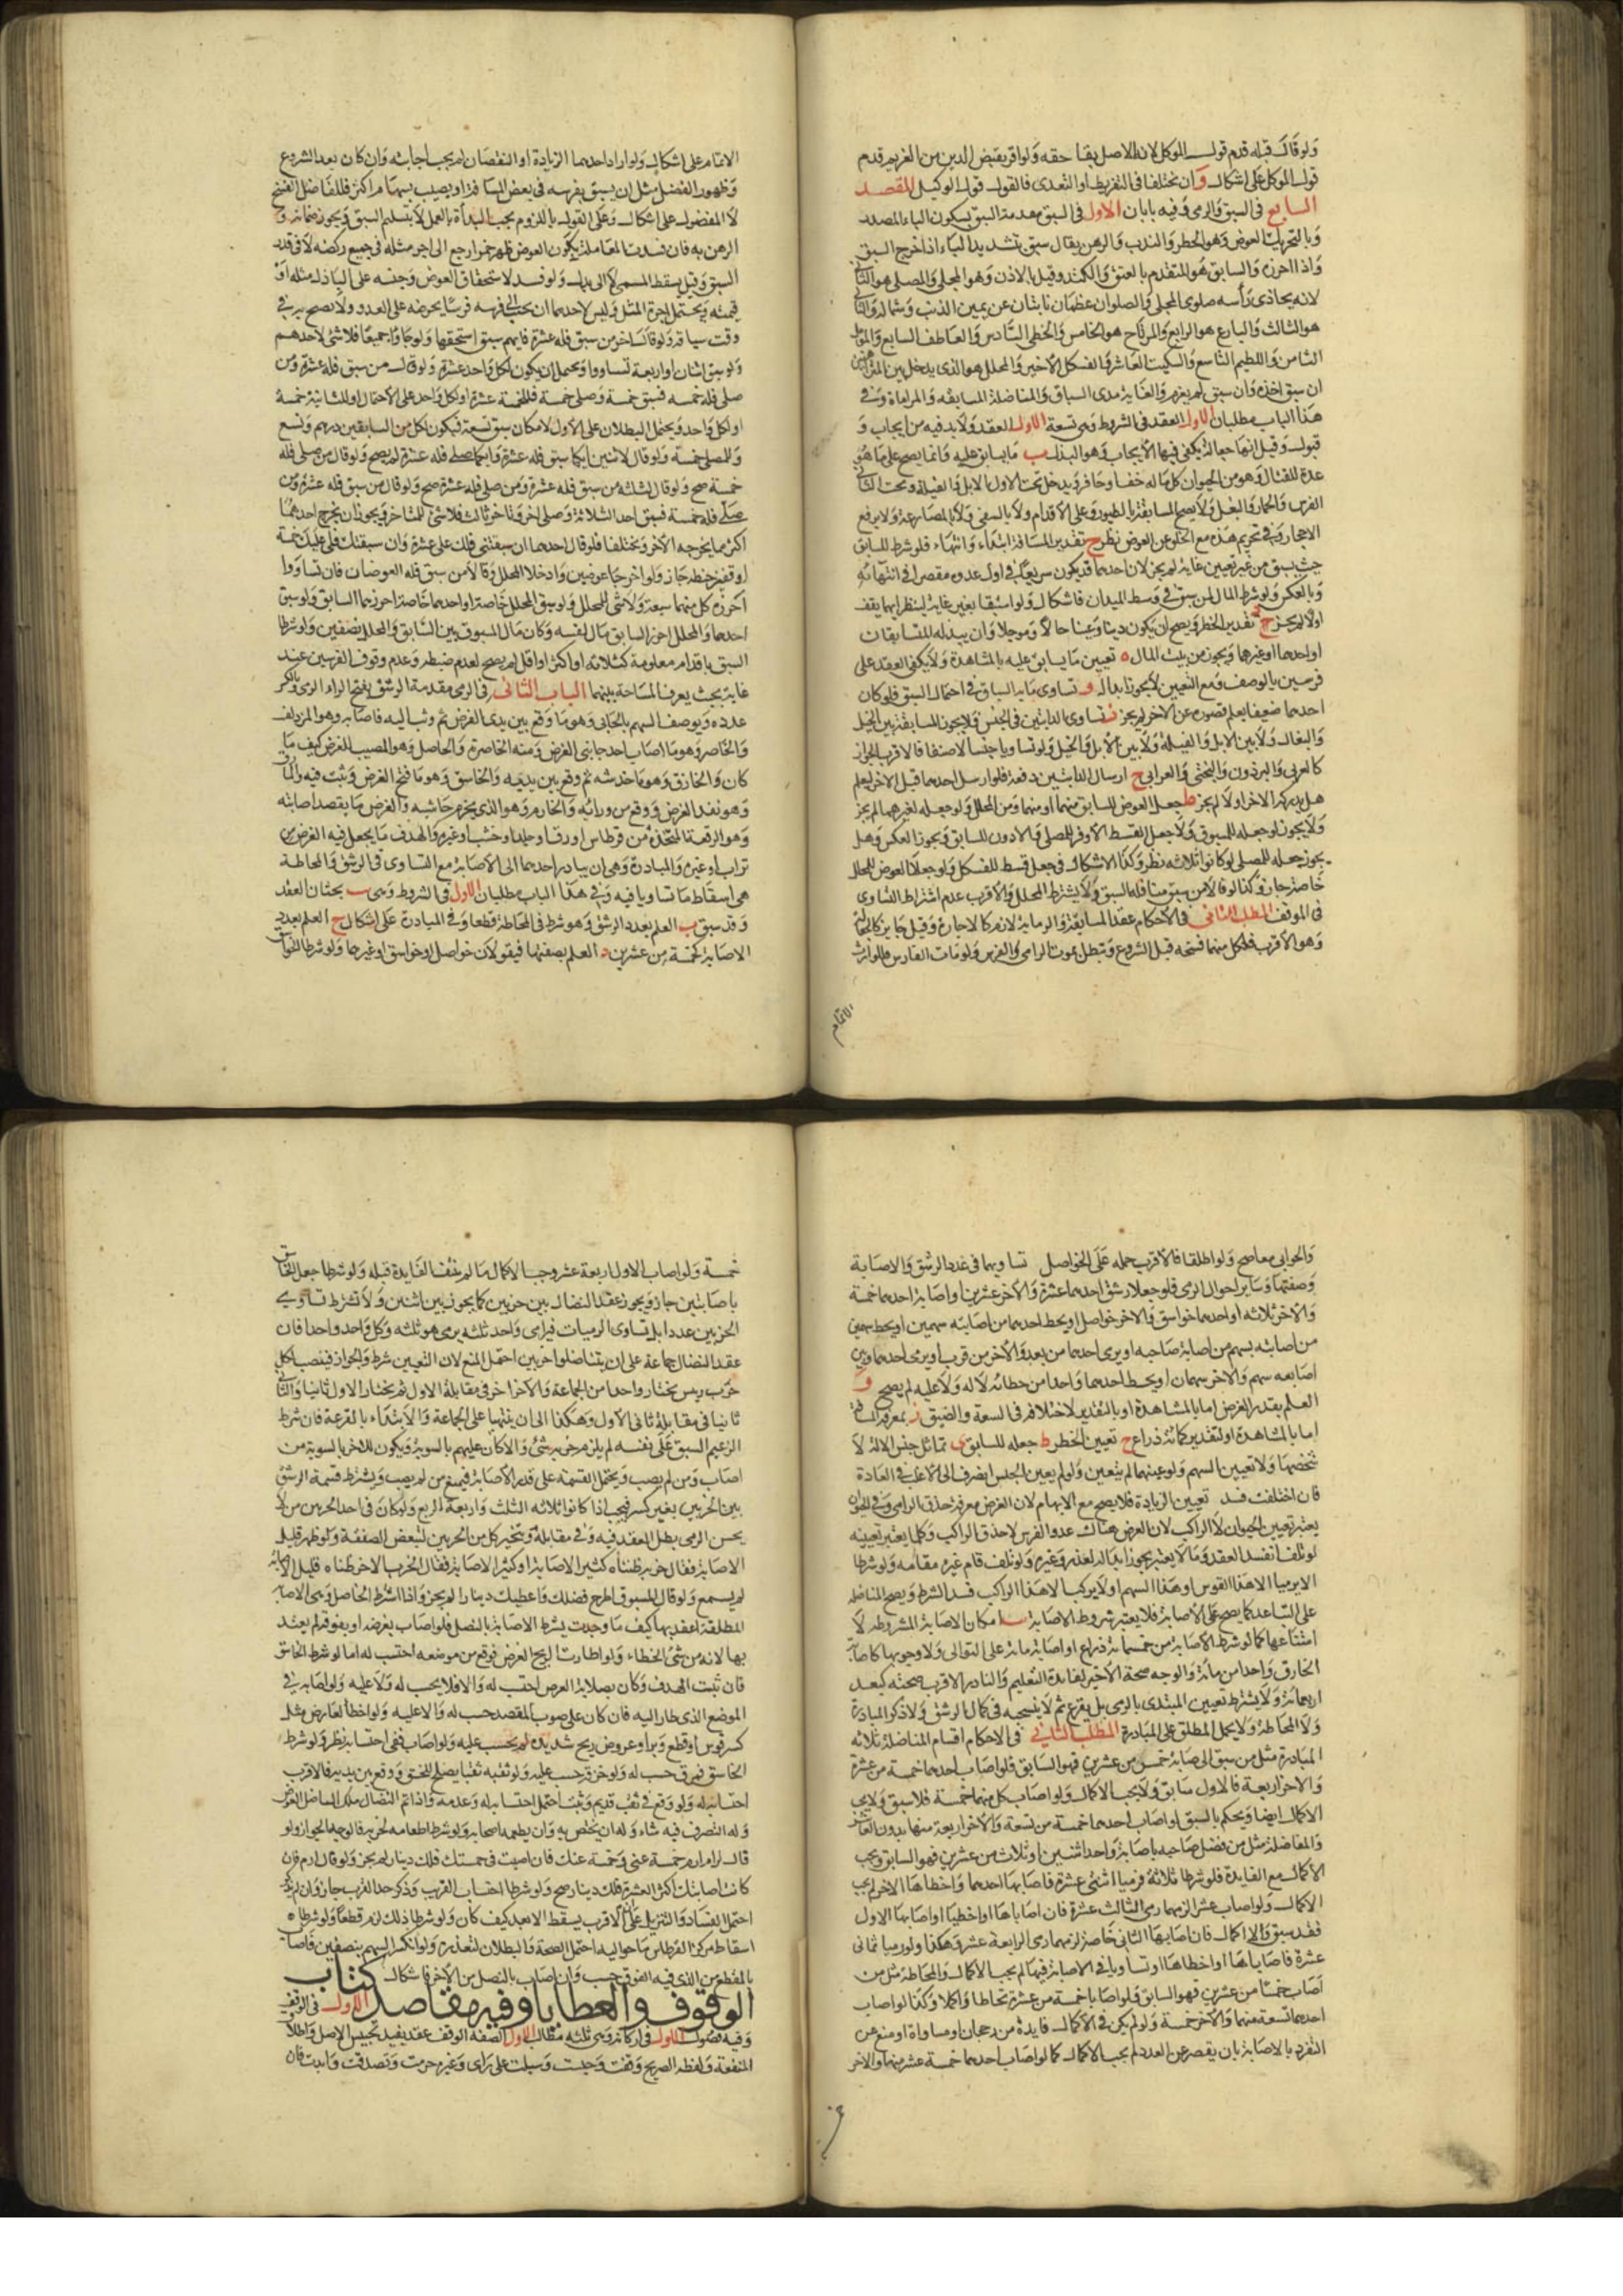 ولو قال قبله قدم قول الموكل لانه الاصل بقا حقه ولو اقر بقبض الدين من الغريم قدم
قول الموكل على اشكال و ان يختلفا فى التفريط او التعدى فالقول قول الوكيل المقصد
السابع فى السبق والرمى وفيه بابان الاول فى السبق مقدمة السبق بسكون الباء المصدر
وبالتحريك العوض وهو الخطر والندب والرهن يقال سبق بتشديد الباء اذا اخرج السبق
واذا احرزه والسابق هو المتقدم بالعتق والكتد وقيل بالاذن وهو المجلى والمصلى هو الثانى
لانه يحاذى رأسه صلوى المجلى والصلوان عظمان نابتان عن يمين الذنب وشماله والتالى
هو الثالث والبارع هو الرابع والمرتاح هو الخامس والحظى السادس والعاطف السابع والمؤمل
الثامن واللطيم التاسع والسكيت العاشر والفسكل الاخير والمحلل هو الذى يدخل بين المتراهنين
ان سبق اخذ وان سبق لم يغرم والغاية مدى السباق والمناضلة المسابقه والمراماة وفى
هذا الباب مطلبان الاول العقد فى الشروط وهى تسعة الاول العقد ولا بد فيه من ايجاب و
قبول وقيل انها جعالة يكفى فيها الايجاب وهو البذل ب ما يسابق عليه وانما يصح على ما هو
عدة للقتال وهو من الحيوان كل ما له خف او حافر ويدخل تحت الاول الابل والفيلة وتحت الثانى
الفرس والحمار والبغل ولا يصح المسابقة بالطيور وعلى الاقدام ولا بالسفن ولا بالمصارعة ولا برفع
الاحجار وفى تحريم هذه مع الخلو عن العوض نظر ج تقدير المسافة ابتداء وانتهاء فلو شرط للسابق
حيث يسبق من غير تعيين غاية لم يجز لان احدهما قد يكون سريعا فى اول عدوه مقصرا فى انتهائه
وبالعكس ولو شرط المال لمن سبق فى وسط الميدان فاشكال ولو استبقا بغير غاية لينظر ايهما يقف
اولا لم يجز تقدير الخطر ويصح ان يكون دينا وعينا حالا وموجلا وان يبذله المتسابقان
او احدهما او غيرهما ويجوز من بيت المال ه تعيين ما يسابق عليه بالمشاهدة ولا يكفى العقد على
فرسين بالوصف ومع التعيين لا يجوز ابداله و تساوى ما به السباق فى احتمال السبق فلو كان
احدهما ضعيفا يعلم قصوره عن الاخر لم يجز ز تساوى الدابتين فى الجنس فلا يجوز المسابقة بين الخيل
والبغال ولا بين الابل والفيلة ولا بين الابل والخيل ولو تساويا جنسا لا صنفا فالاقرب الجواز
كالعربى والبرذون والبختى والعرابى ح ارسال الدابتين دفعة فلو ارسل احدهما قبل الاخر ليعلم
هل يدركه الاخر او لا لم يجز ط جعل العوض للسابق منهما او منهما ومن المحلل ولو جعله لغيرهم لم يجز
ولا يجوز لو جعله للمسبوق ولا جعل القسط الاوفر للمصلى والادون للسابق ويجوز العكس وهل
يجوز جعله للمصلى لو كانوا ثلاثة نظر وكذا الاشكال فى جعل قسط للفسكل ولو جعلا العوض للمحلل
خاصة جاز وكذا لو قالا من سبق منا فله السبق ولا يشترط المحلل والاقرب عدم اشتراط التساوى
فى الموقف المطلب الثانى فى الاحكام عقد المسابقة والرماية لازم كالاجارة وقيل جايز كالجعالة
وهو الاقرب فلكل منهما فسخه قبل الشروع وتبطل بموت الرامى والفرس ولو مات الفارس فللوارث
الاتمام
الاتمام على اشكال ولو اراد احدهما الزيادة او النقصان لم يجب اجابته وان كان بعد الشروع
وظهور الفضل مثل ان يسبق بفرسه فى بعض المسافة او يصيب بسهام اكثر فللفاضل الفسخ
لا المفضول على اشكال وعلى القول باللزوم يجب البدأة بالعمل لا بتسليم السبق ويجوز ضمانه و
الرهن به فان فسدت المعاملة بكون العوض ظهر خمرا رجع الى اجر مثله فى جميع ركضه لا فى قدر
السبق وقيل يسقط المسمى لا الى بدل ولو فسد لاستحقاق العوض وجب على الباذل مثله او
قيمته ويحتمل اجرة المثل وليس لاحدهما ان يجنب الى فرسه فرسا يحرضه على العدو ولا يصيح به فى
وقت سياقه ولو قال اخر من سبق فله عشرة فايهم سبق استحقها ولو جاؤا جميعا فلا شئ لاحدهم
ولو سبق اثنان او اربعة تساووا ويحتمل ان يكون لكل واحد عشرة ولو قال من سبق فله عشرة ومن
صلى فله خمسه فسبق خمسة وصلى خمسة فللخمسة عشرة او لكل واحد على الاحتمال او للثانية خمسة
او لكل واحد ويحتمل البطلان على الاول لامكان سبق تسعة فيكون لكل من السابقين درهم وتسع
وللمصلى خمسة ولو قال لاثنين ايكما سبق فله عشرة وايكما صلى فله عشرة لم يصح ولو قال من صلى فله
خمسة صح ولو قال لثلثة من سبق فله عشرة ومن صلى فله عشرة صح ولو قال من سبق فله عشرة ومن
صلى فله خمسة فسبق احد الثلاثة وصلى اخر وتاخر ثالث فلا شئ للمتاخر ويجوز ان يخرج احدهما
اكثر مما يخرجه الآخر ويختلفا فلو قال احدهما ان سبقتنى فلك على عشرة وان سبقتك فلى عليك خمسة
او قفيز حنطه جاز ولو اخرجا عوضين وادخلا المحلل وقالا من سبق فله العوضان فان تساووا
احرز كل منهما سبقه ولا شئ للمحلل ولو سبق المحلل خاصة او احدهما خاصة احرزهما السابق ولو سبق
احدهما والمحلل احرز السابق مال نفسه وكان مال المسبوق بين السابق والمحلل نصفين ولو شرطا
السبق باقدام معلومة كثلاثه او اكثر او اقل لم يصح لعدم ضبطه وعدم وقوف الفرسين عند
غاية بحيث يعرف المساحة بينهما الباب الثانى فى الرمى مقدمة الرشق بفتح الراء الرمى وبالكسر
عدده ويوصف السهم بالحابى وهو ما وقع بين يدى الغرض ثم وثب اليه فاصابه وهو المزدلف
والخاصر وهو ما اصاب احد جانبى الغرض ومنه الخاصرة والحاصل وهو المصيب للغرض كيف ما
كان والخازق وهو ما خدشه ثم وقع بين يديه والخاسق وهو ما فتح الغرض وثبت فيه والمارق
وهو نفد الغرض ووقع من ورائه والخارم وهو الذى يخرم حاشيه والغرض ما يقصد اصابته
وهو الرقعة المتخذة من قرطاس او رق او جلد او خشب او غيره والهدف ما يجعل فيه الغرض من
تراب او غيره والمبادرة وهى ان يبادر احدهما الى الاصابة مع التساوى فى الرشق والمحاطة
هى اسقاط ما تساويا فيه وفى هذا الباب مطلبان الاول فى الشروط وهى ب بحثان العقد
وقد سبق ب العلم بعدد الرشق وهو شرط فى المحاطة قطعا وفى المبادرة على اشكال ج العلم بعدد
الاصابة كخمسة من عشرين د العلم بصفتها فيقولان خواصل او خواسق او غيرهما ولو شرطا الخواسق
والحوابى معا صح ولو اطلقا فالاقرب حمله على الخواصل تساويهما فى عدد الرشق والاصابة
وصفتها وساير احوال الرمى فلو جعلا رشق احدهما عشرة والآخر عشرين او اصابة احدهما خمسة
والآخر ثلاثه او احدهما خواسق والاخر خواصل او يحط احدهما من اصابته سهمين او يحط سهمين
من اصابته بسهم من اصابة صاحبه او يرمى احدهما من بعد والآخر من قرب او يرمى احدهما وبين
اصابعه سهم والاخر سهمان او يحط احدهما واحدا من خطائه لا له ولا عليه لم يصح و
العلم بقدر الغرض اما بالمشاهدة او بالتقدير لاختلافه فى السعة والضيق ز معرفة المسافة
اما بالمشاهدة او لتقدير كمائة ذراع ح تعيين الخطر ط جعله للسابق ى تماثل جنس الالة لا
شخصها ولا تعيين السهم ولو عينهما لم يتعين ولو لم يعين الجنس انصرف الى الاغلب فى العادة
فان اختلفت فسد تعيين الزيادة فلا يصح مع الابهام لان الغرض معرفة حذق الرامى وفى الحيوان
يعتبر تعيين الحيوان لا الراكب لان الغرض هناك عدو الفرس لا حذق الراكب وكلما يعتبر تعيينه
لو تلف انفسد العقد وما لا يعتبر يجوز ابداله لعذر وغيره ولو تلف قام غيره مقامه ولو شرطا
الا يرميا الا هذا القوس او هذا السهم او لا يركب الا هذا الراكب فسد الشرط ويصح المناضله
على التباعد كما يصح على الاصابة فلا يعتبر شروط الاصابة امكان الاصابة المشروطه لا
امتناعها كما لو شرط الاصابة من خمسمائة ذراع او اصابة مائة على التوالى ولا وجوبها كاصابة
الحاذق واحدا من مائة والوجه صحة الاخير لفايدة التعليم والنادر الاقرب صحته كبعد
اربعمائة ولا يشترط تعيين المبتدى بالرمى بل يقرع ثم لا ينسحبه فى كل الرشق ولا ذكر المبادرة
ولا المحاطة ولا يحمل المطلق على المبادرة المطلب الثانى فى الاحكام اقسام المناضلة ثلاثه
المبادرة مثل من سبق الى اصابة خمس من عشرين فهو السابق فلو اصاب احدهما خمسة من عشرة
والآخر اربعة فالاول سابق ولا يجب الاكمال ولو اصاب كل منهما خمسة فلا سبق ولا يجب
الاكمال ايضا ويحكم بالسبق لو اصاب احدهما خمسة من تسعة والآخر اربعة منها بدون العاشر
والمفاضلة مثل من فضل صاحبه باصابة واحد او اثنين او ثلاث من عشرين فهو السابق ويجب
الاكمال مع الفايدة فلو شرطا ثلاثة فرميا اثنى عشرة فاصابها احدهما واخطاها الاخر لم يجب
الاكمال ولو اصاب عشر الزمهما رمى الثالث عشرة فان اصاباها او اخطيا او اصابها الاول
فقد سبق ولا اكمال فان اصابها الثانى خاصة لزمهما رمى الرابعة عشر وهكذا ولو رميا ثمانى
عشرة فاصاباها او اخطاها او تساويا فى الاصابة فيها لم يجب الاكمال والمحاطة مثل من
اصاب خمسا من عشرين فهو السابق فلو اصابا خمسة من عشرة تحاطا واكملا وكذا لو اصاب
احدهما تسعة منها والآخر خمسة ولو لم يكن فى الاكمال فايدة من رجحان او مساواة او منع عن
التفرد بالاصابة بان يقصر عن العدد لم يجب الاكمال كما لو اصاب احدهما خمسة عشر منها والاخر
خمسة ولو اصاب الاول اربعة عشر وجب الاكمال ما لم تنتف الفايدة قبله ولو شرطا جعل الخاسق
باصابتين جاز ويجوز عقد النضال بين حزبين كما يجوز بين اثنين ولا تشترط تساوى
الحزبين عددا بل تساوى الرميات فيرامى واحد ثلثه يرمى هو ثلثه وكل واحد واحدا فان
عقد النضال جماعة على ان يتناضلوا حزبين احتمل المنع لان التعيين شرط والجواز فينصب لكل
حزب ريس يختار واحدا من الجماعة والآخر اخر فى مقابلة الاول ثم يختار الاول ثانيا والثانى
ثانيا فى مقابلة ثانى الاول وهكذا الى ان ينتهيا على الجماعة والابتداء بالقرعة فان شرط
الزعيم السبق على نفسه لم يلزم حزبه شئ والا كان عليهم بالسوية ويكون للاخر بالسوية من
اصاب ومن لم يصب ويحتمل القسمة على قدر الاصابة فيمنع من لم يصب ويشترط قسمة الرشق
بين الحزبين بغير كسر فيجب اذا كانوا ثلاثه الثلث واربعة الربع ولو كان فى احد الحزبين من لا
يحسن الرمى بطل العقد فيه وفى مقابله ويتخير كل من الحزبين لتبعض الصفقة ولو ظهر قليل
الاصابة فقال حزبه ظنناه كثير الاصابة او كثير الاصابة فقال الحزب الاخر ظنناه قليل الاصابة
لم يسمع ولو قال المسبوق اطرح فضلك واعطيك دينارا لم يجز واذا اشترط الخاصل وهى الاصابة
المطلقة اعتد بها كيف ما وجدت بشرط الاصابة بالنصل فلو اصاب بعرضه او بفوقه لم يعتد
بها لانه من سئ الخطاء ولو اطارت الريح الغرض فوقع من موضعه احتسب له اما لو شرط الخاسق
فان ثبت الهدف وكان بصلابة الغرض احتسب له والا فلا يحسب له ولا عليه ولو اصابه فى
الموضع الذى طار اليه فان كان على صوب المقصد حسب له والا عليه ولو اخطأ لعارض مثل
كسر قوس او قطع وتر او عروض ريح شديده لم يحسب عليه ولو اصاب ففى احتسابه نظر ولو شرط
الخاسق فمرق حسب له ولو خرقه حسب عليه ولو ثقبه ثقبا يصلح للخسق ووقع بين يديه فالاقرب
احتسابه له ولو وقع فى ثقب قديم وثبت احتمل احتسابه له وعدمه واذا تم النضال ملك المناضل العوض
وله التصرف فيه شاء وله ان يختص به وان يطعمه اصحابه ولو شرطا اطعامه لحزبه فالوجه الجواز ولو
قال لرام ارم خمسة عنى وخمسة عنك فان اصبت فى خمستك فلك دينار لم يجز ولو قال ارم فان
كانت اصابتك اكثر العشرة فلك دينار صح ولو شرطا احتساب القريب وذكر حد القرب جاز وان لم يذكر
احتمل الفساد والتنزيل على ان الاقرب يسقط الابعد كيف كان ولو شرطا ذلك لزم قطعا ولو شرطا
اسقاط مركز القرطاس ما حواليه احتمل الصحة والبطلان لتعذره ولو انكسر السهم بنصفين فاصاب
بالمقطع من الذى فيه الفوق حسب وان اصاب بالنصل من الآخر فاشكال كتاب
الوقوف والعطايا وفيه مقاصد الاول فى الوقف
وفيه فصول الاول فى اركانه وهى ثلثه مطالب الاول الصفة الوقف عقد يفيد تحبيس الاصل واطلاق
المنفعة ولفظه الصريح وقفت وحبست وسبلت على راى وغيره حرمت وتصدقت وابدت فان